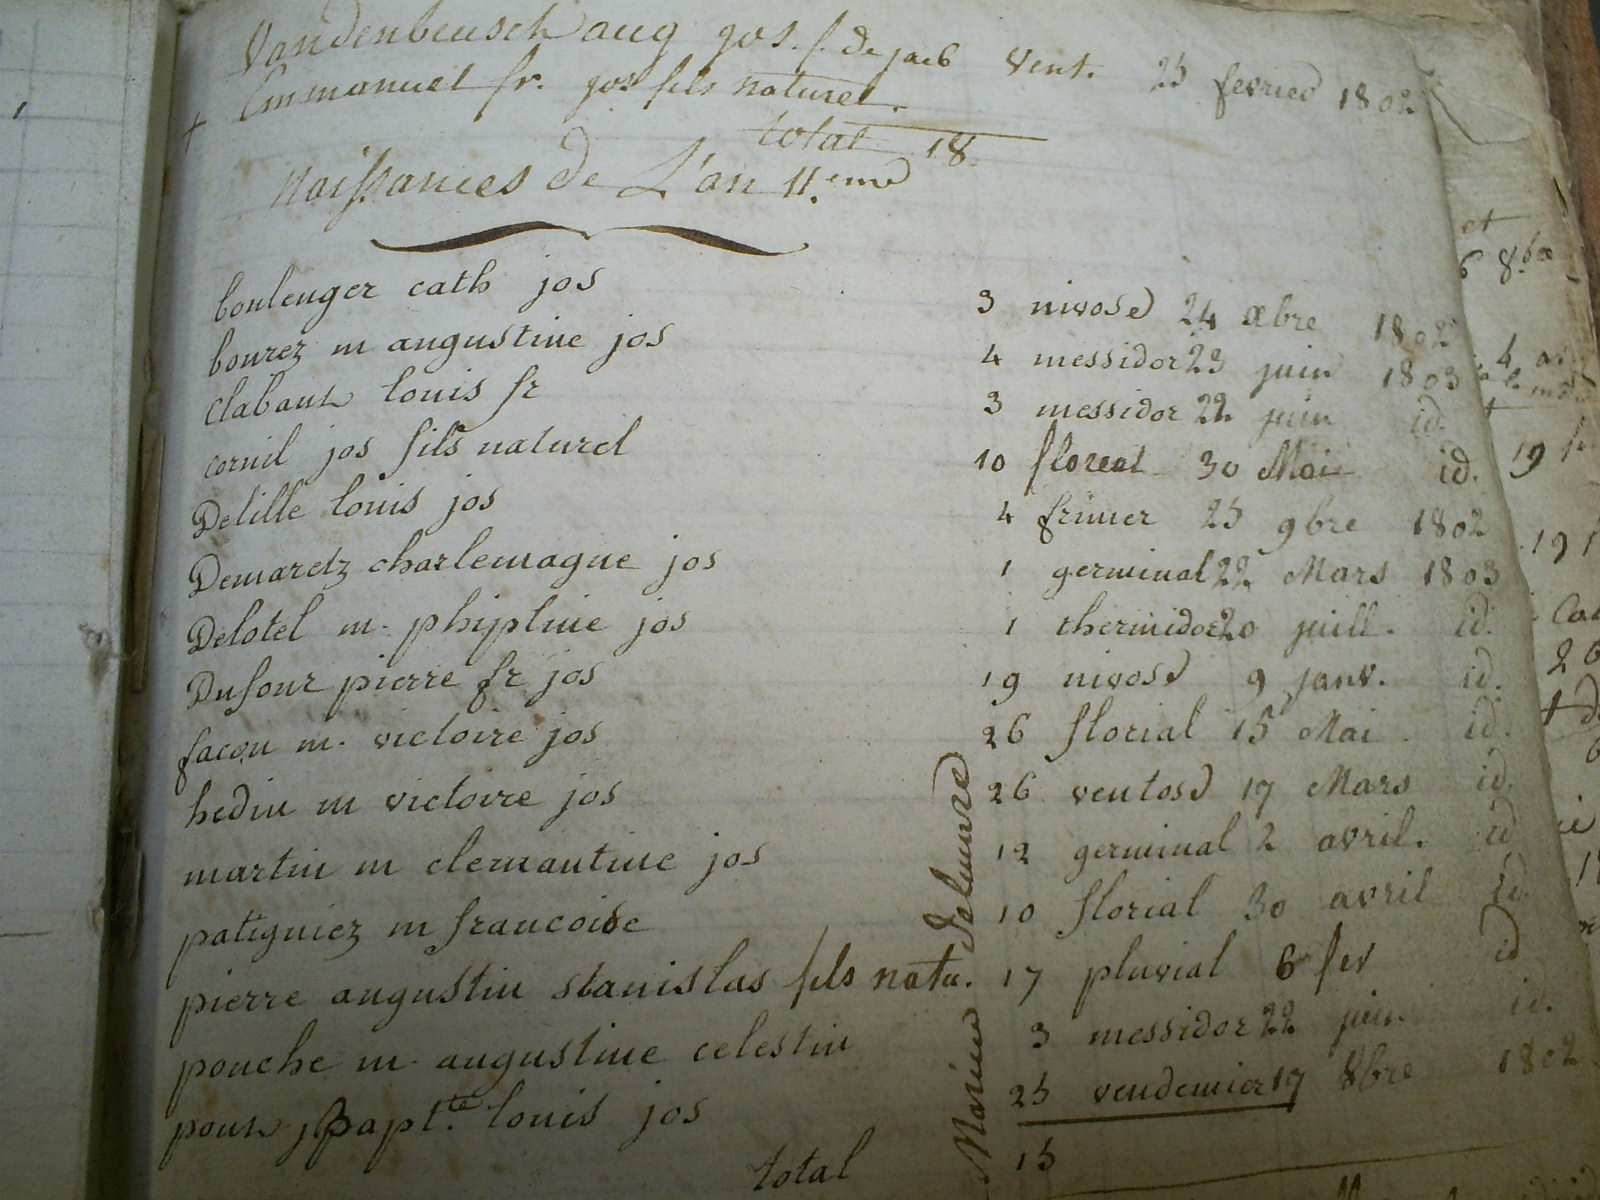 Vandenbeusch aug jos. f. de jacb vent. 25 fevried 1802
+ Emmanuel fr. jos fils naturel.
total 18.
Naissances de L'an 11.eme
boulenger cath jos 3 nivose 24 xbre 1802
bourez m augustine jos 4 messidor 23 juin 1803
Clabaut louis fr 3 messidor 22 juin id.
cornil jos fils naturel 10 floreal 30 Mai id.
Delille louis jos 4 frimer 25 9bre 1802
Demaretz charlemagne jos 1 germinal 22 Mars 1803
Delotel m. phipline jos 1 thermidor 20 juill. id.
Dufour pierre fr jos 19 nivose 9 janv. id.
facon m. victoire jos 26 florial 15 Mai. id.
hedin m victoire jos 26 ventose 17 Mars id.
martin m clemantine jos 12 germinal 2 avril. id
patigniez m francoise 10 florial 30 avril id.
pierre augustin stanislas fils natu. 17 pluvial 6 fev id
pouche m. augustine celestin 3 messidor 22 juin. id.
poun j Bapt.te louis jos 25 vendemier 17 8bre 1802
total 15